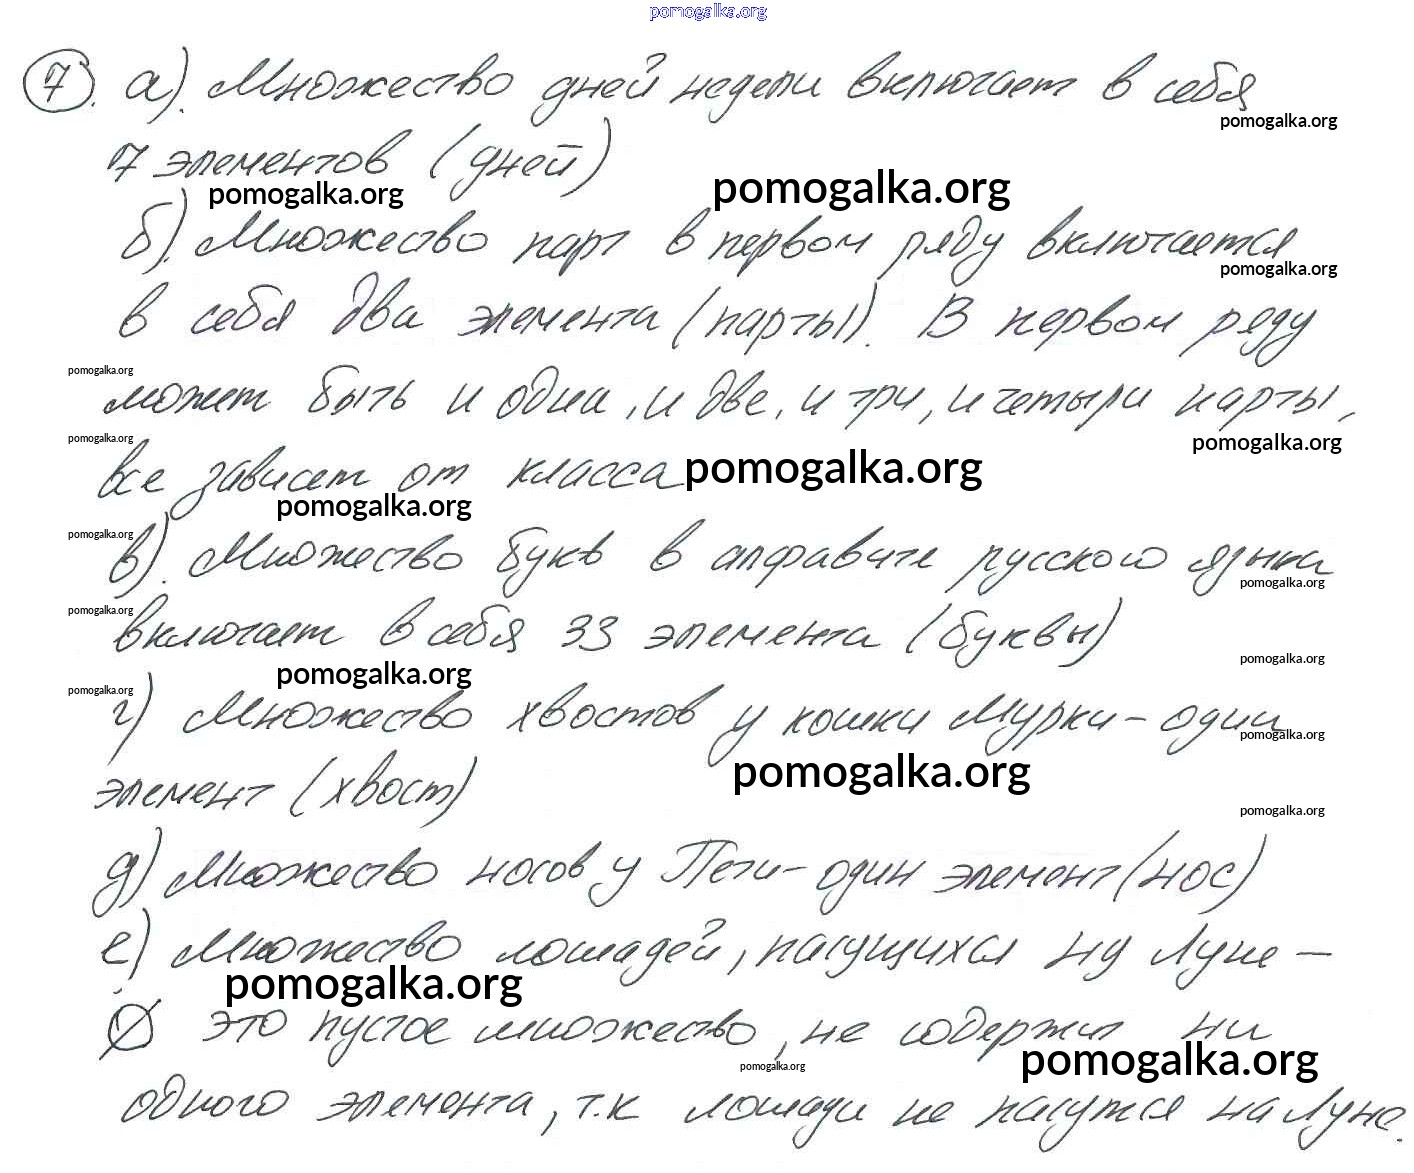 pomogalka.org
7. а). Множество дней недели включает в себя
pomogalka.org
7 элементов (дней)
pomogalka.org pomogalka.org
б). Множество парт в первом ряду включается
pomogalka.org
в себя два элемента (парты). В первом ряду
pomogalka.org
может быть и одна, и две, и три, и четыри парты,
pomogalka.org pomogalka.org
все зависет от класса pomogalka.org
pomogalka.org
pomogalka.org
в). Множество букв в алфавите русского языка
pomogalka.org
pomogalka.org
включает в себя 33 элемента (буквы)
pomogalka.org pomogalka.org
pomogalka.org
г) Множество хвостов у кошки Мурки – один
pomogalka.org
элемент (хвост) pomogalka.org
pomogalka.org
д) Множество носов у Пети – один элемент (нос)
е) Множество лошадей, пасущихся ну Луне –
pomogalka.org
∅ это пустое множество, не содержит ни
pomogalka.org pomogalka.org
одного элемента, т.к лошади не пасутся на Луне.